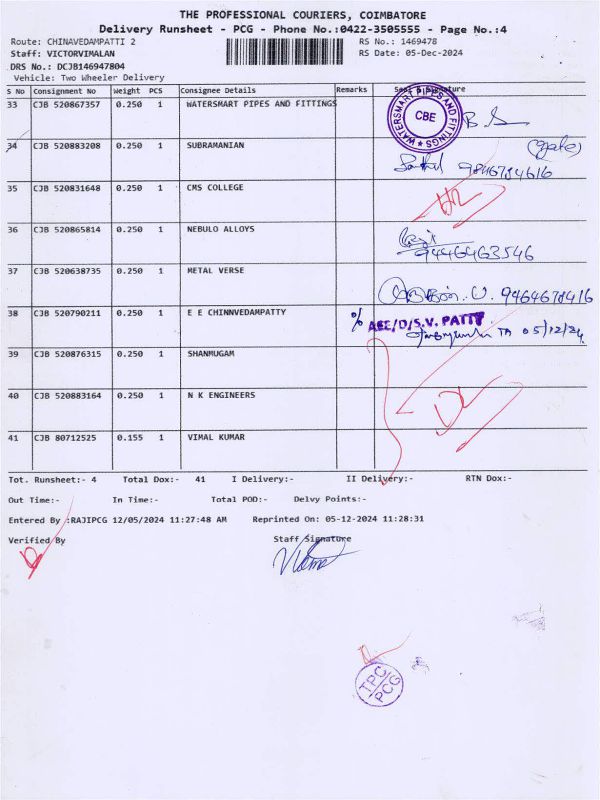 THE PROFESSIONAL COURIERS, COIMBATORE
Delivery Runsheet - PCG - Phone No.:0422-3505555 - Page No.:4
Route: CHINAVEDAMPATTI 2 RS No.: 1469478
Staff: VICTORVIMALAN RS Date: 05-Dec-2024
DRS No.: DCJB146947804
Vehicle: Two Wheeler Delivery
S No Consignment No Weight PCS Consignee Details Remarks Signature
33 CJB 520867357 0.250 1 WATERSMART PIPES AND FITTINGS
WATERSMART PIPES AND FITTINGS ★ CBE
34 CJB 520883208 0.250 1 SUBRAMANIAN
9846784616
35 CJB 520831648 0.250 1 CMS COLLEGE
36 CJB 520865814 0.250 1 NEBULO ALLOYS
9446463546
37 CJB 520638735 0.250 1 METAL VERSE
9464678416
38 CJB 520790211 0.250 1 E E CHINNVEDAMPATTY
AEE/D/S.V. PATTY
TA 05/12/24
39 CJB 520876315 0.250 1 SHANMUGAM
40 CJB 520883164 0.250 1 N K ENGINEERS
DL
41 CJB 80712525 0.155 1 VIMAL KUMAR
Tot. Runsheet:- 4 Total Dox:- 41 I Delivery:- II Delivery:- RTN Dox:-
Out Time:- In Time:- Total POD:- Delvy Points:-
Entered By :RAJIPCG 12/05/2024 11:27:48 AM Reprinted On: 05-12-2024 11:28:31
Verified By Staff Signature
TPC
PCG